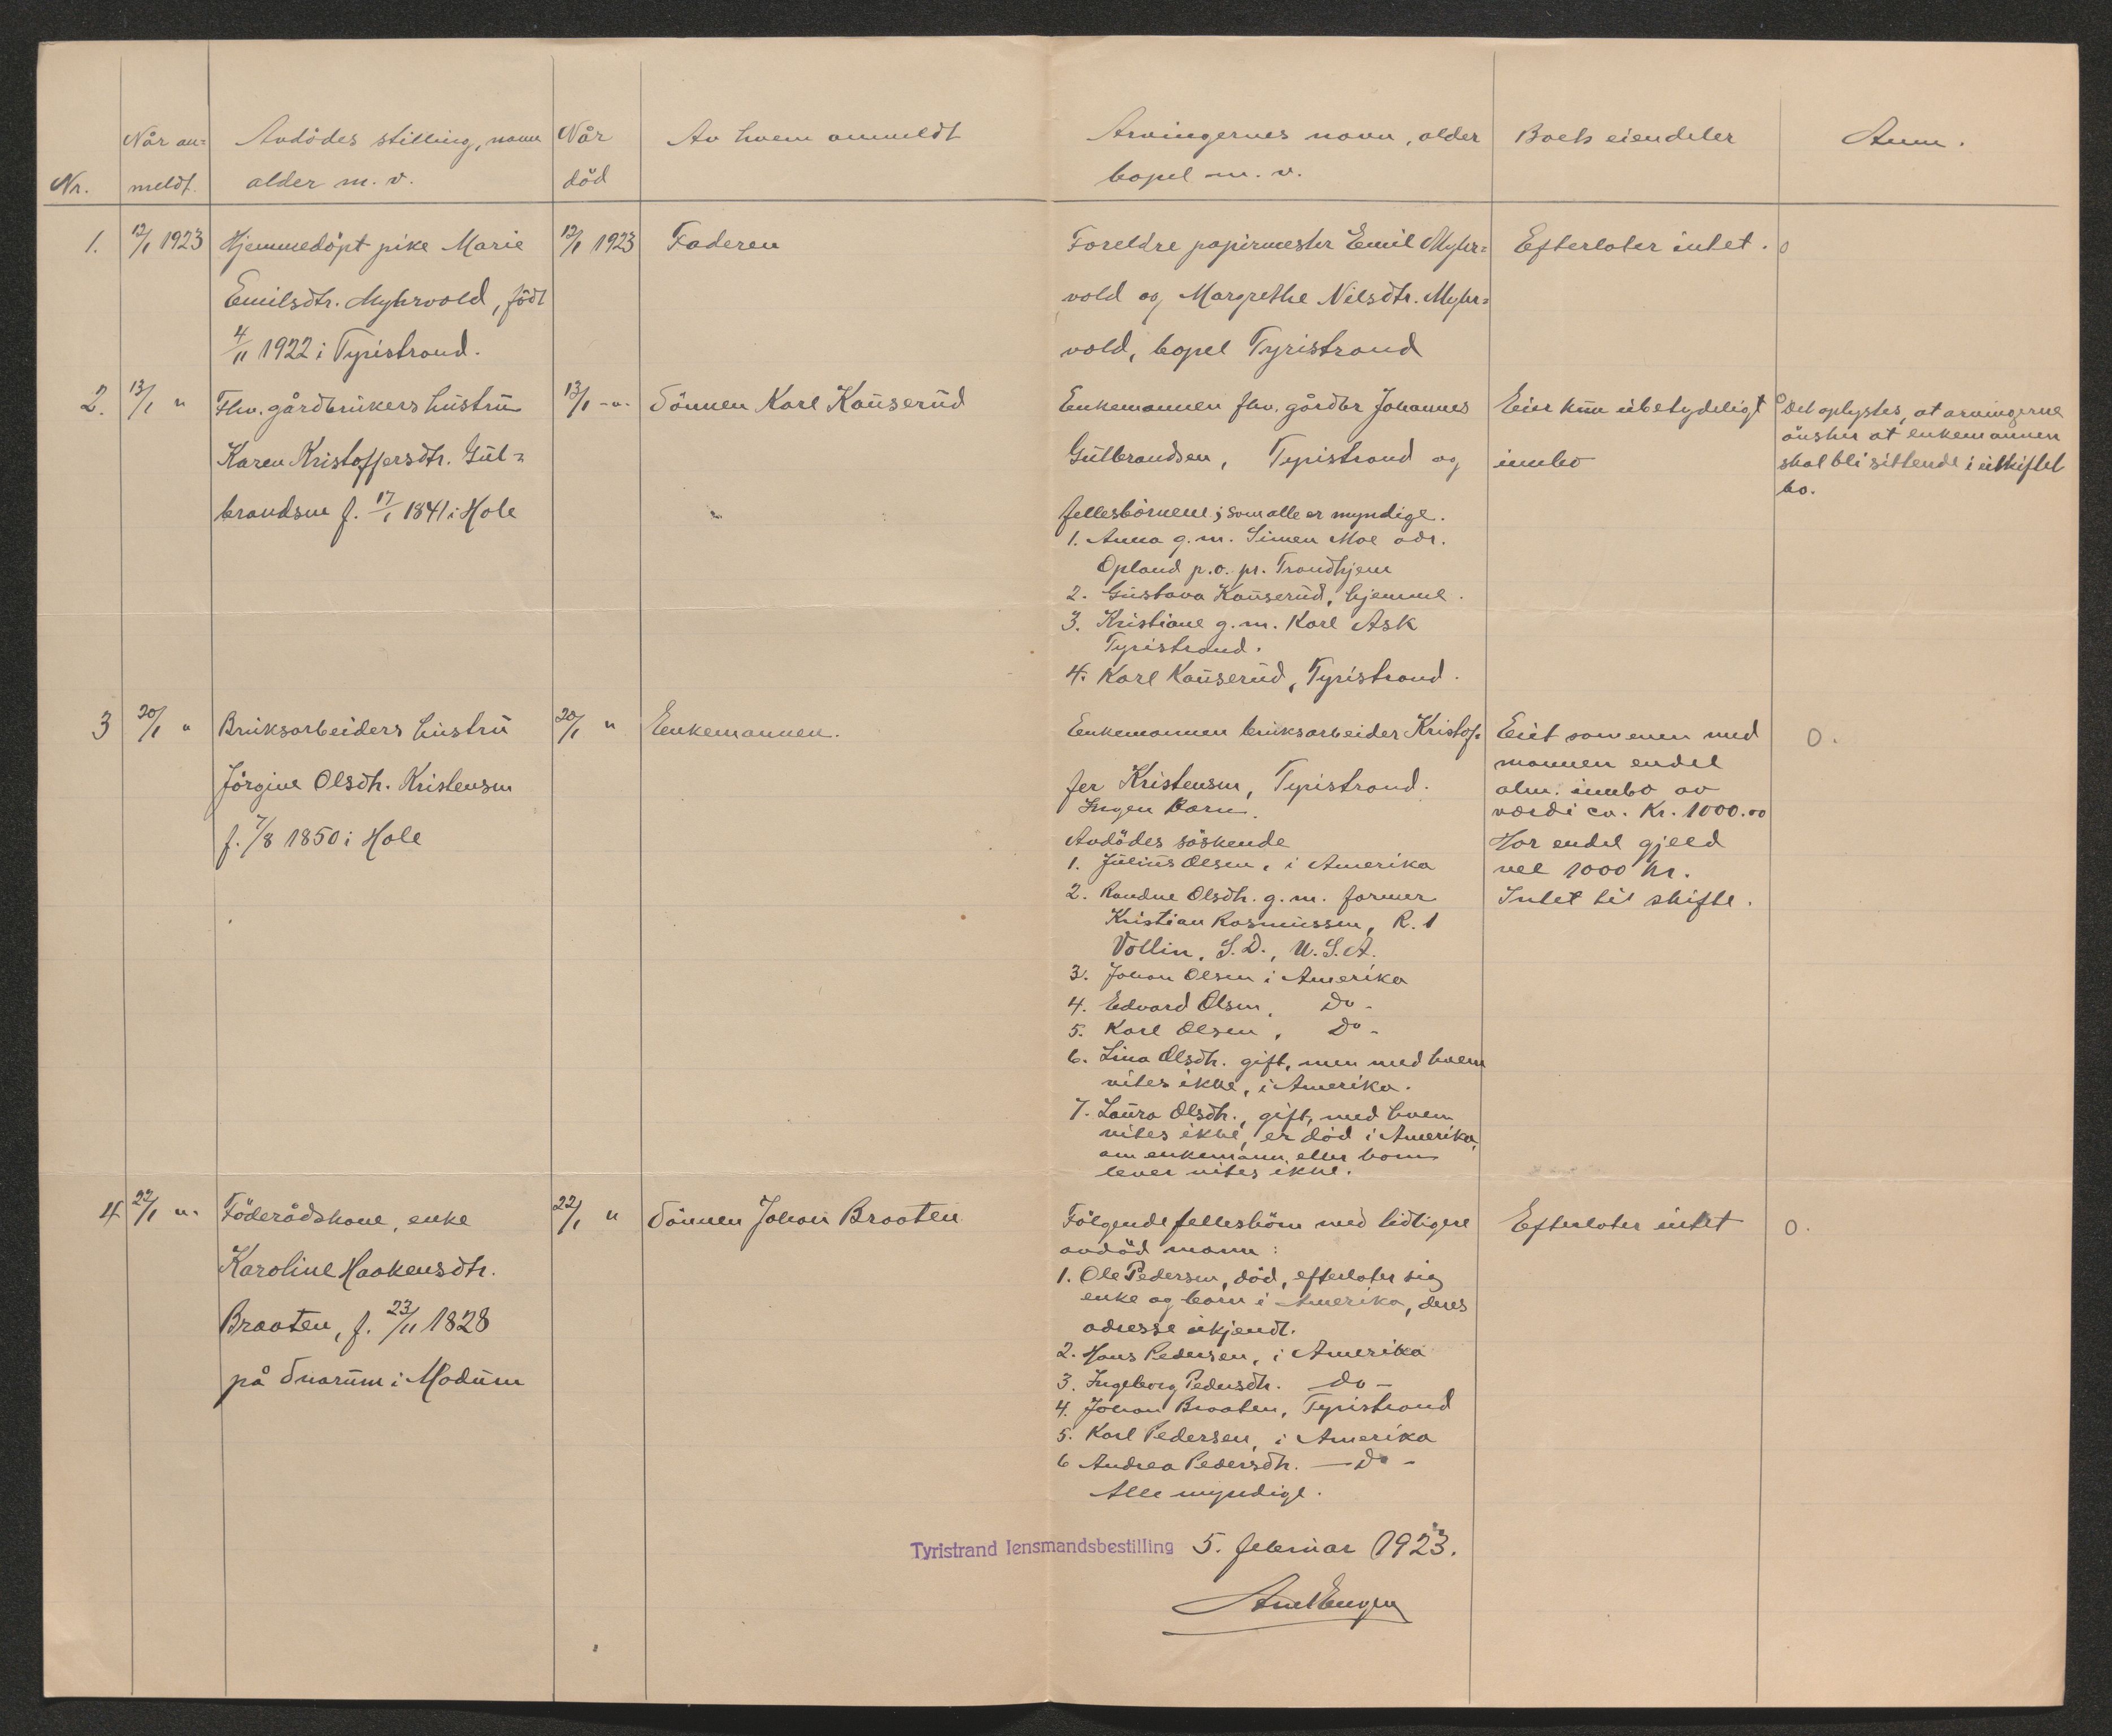 Nr.
Når an=
meldt.
Avdödes stilling, navn
alder m. v.
Når
död
Av hvem anmeldt
Arvingernes navn, alder
bopel m. v.
Boets eiendeler
Anm.
1.
12/1 1923
Hjemmedöpt pike Marie
Emilsdtr. Myhrvold, född
4/11 1922 i Tyristrand.
12/1 1923
Faderen
Foreldre papirmester Emil Myhr=
vold og Margrethe Nilsdtr. Myhr=
vold, bopel Tyristrand
Efterlater intet.
0
2.
13/1 "
Fhv. gårdbrukers hustru
Karen Kristoffersdtr. Gul=
brandsen f. 17/1 1841 i Hole
13/1 -"-
Sönnen Karl Kauserud
Enkemannen fhv. gårdbr Johannes
Gulbrandsen, Tyristrand og
fellesbörnene; som alle er myndige.
1. Anna g. m. Simen Moe adr.
Opland p.o. pr. Trondhjem
2. Gustava Kauserud, hjemme.
3. Kristiane g. m. Karl Ask
Tyristrand.
4. Karl Kauserud, Tyristrand.
Eier kun ubetydeligt
innbo
0
Det oplystes, at arvingerne
önsker at enkemannen
skal bli sittende i uskiftet
bo.
3
20/1 "
Bruksarbeiders hustru
Jörgine Olsdtr. Kristensen
f. 7/8 1850 i Hole
20/1 "
Enkemannen.
Enkemannen bruksarbeider Kristof=
fer Kristensen, Tyristrand.
Ingen barn.
Avdödes söskende
1. Julius Olsen, i Amerika
2. Randne Olsdtr. g. m. farmer
Kristian Rasmussen, R. 1
Vollin, S.D., U.S.A.
3. Johan Olsen i Amerika
4. Edvard Olsen, Do -
5. Karl Olsen, Do -
6. Lina Olsdtr. gift, men med hvem
vites ikke, i Amerika.
7. Laura Olsdtr., gift, med hvem
vites ikke, er död i Amerika,
om enkemann eller barn
lever vites ikke.
Eiet sammen med
mannen endel
alm. innbo av
værdi ca. Kr. 1000.00
Har endel gjeld
vel 1000 kr.
Intet til skifte.
0.
4
22/1 "-
Föderådskone, enke
Karoline Haakensdtr.
Braaten, f. 23/11 1828
på Snarum i Modum
22/1 "
Sönnen Johan Braaten
Fölgende fellesbörn med tidligere
avdöd mann:
1. Ole Pedersen, död, efterlater sig
enke og barn i Amerika, deres
adresse ukjendt.
2. Hans Pedersen, i Amerika
3. Ingeborg Pedersdtr. do -
4. Johan Braaten, Tyristrand
5. Karl Pedersen, i Amerika
6 Andrea Pedersdtr. - Do -
Alle myndige.
Efterlater intet
0.
Tyristrand lensmandsbestilling 5. februar 1923.